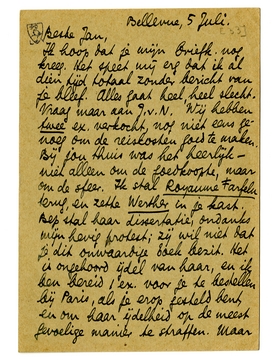 Bellevue, 5 Juli.
Beste Jan,
Ik hoop dat je mijn briefk. nog
kreeg. Het speet mij erg dat ik al
dien tijd totaal zonder bericht van
je bleef. Alles gaat heel, heel slecht.
Vraag maar aan J.v.N. Wij hebben
twee ex. verkocht, nog niet eens ge-
noeg om de reiskosten goed te maken.
Bij jou thuis was het heerlijk—
niet alleen om de goedkoopte, maar
om de sfeer. Ik stal Royaume Farfelu
terug, en zette Werther in je kast.
Bep stal haar dissertatie, ondanks
mijn hevig protest; zij wil niet dat
je dit onwaardige boek bezit. Het
is ongehoord ijdel van haar, en ik
ben bereid 1 ex. voor je te bestellen
bij Paris, als je erop gesteld bent
en om haar ijdelheid op de meest
gevoelige manier te straffen. Maar